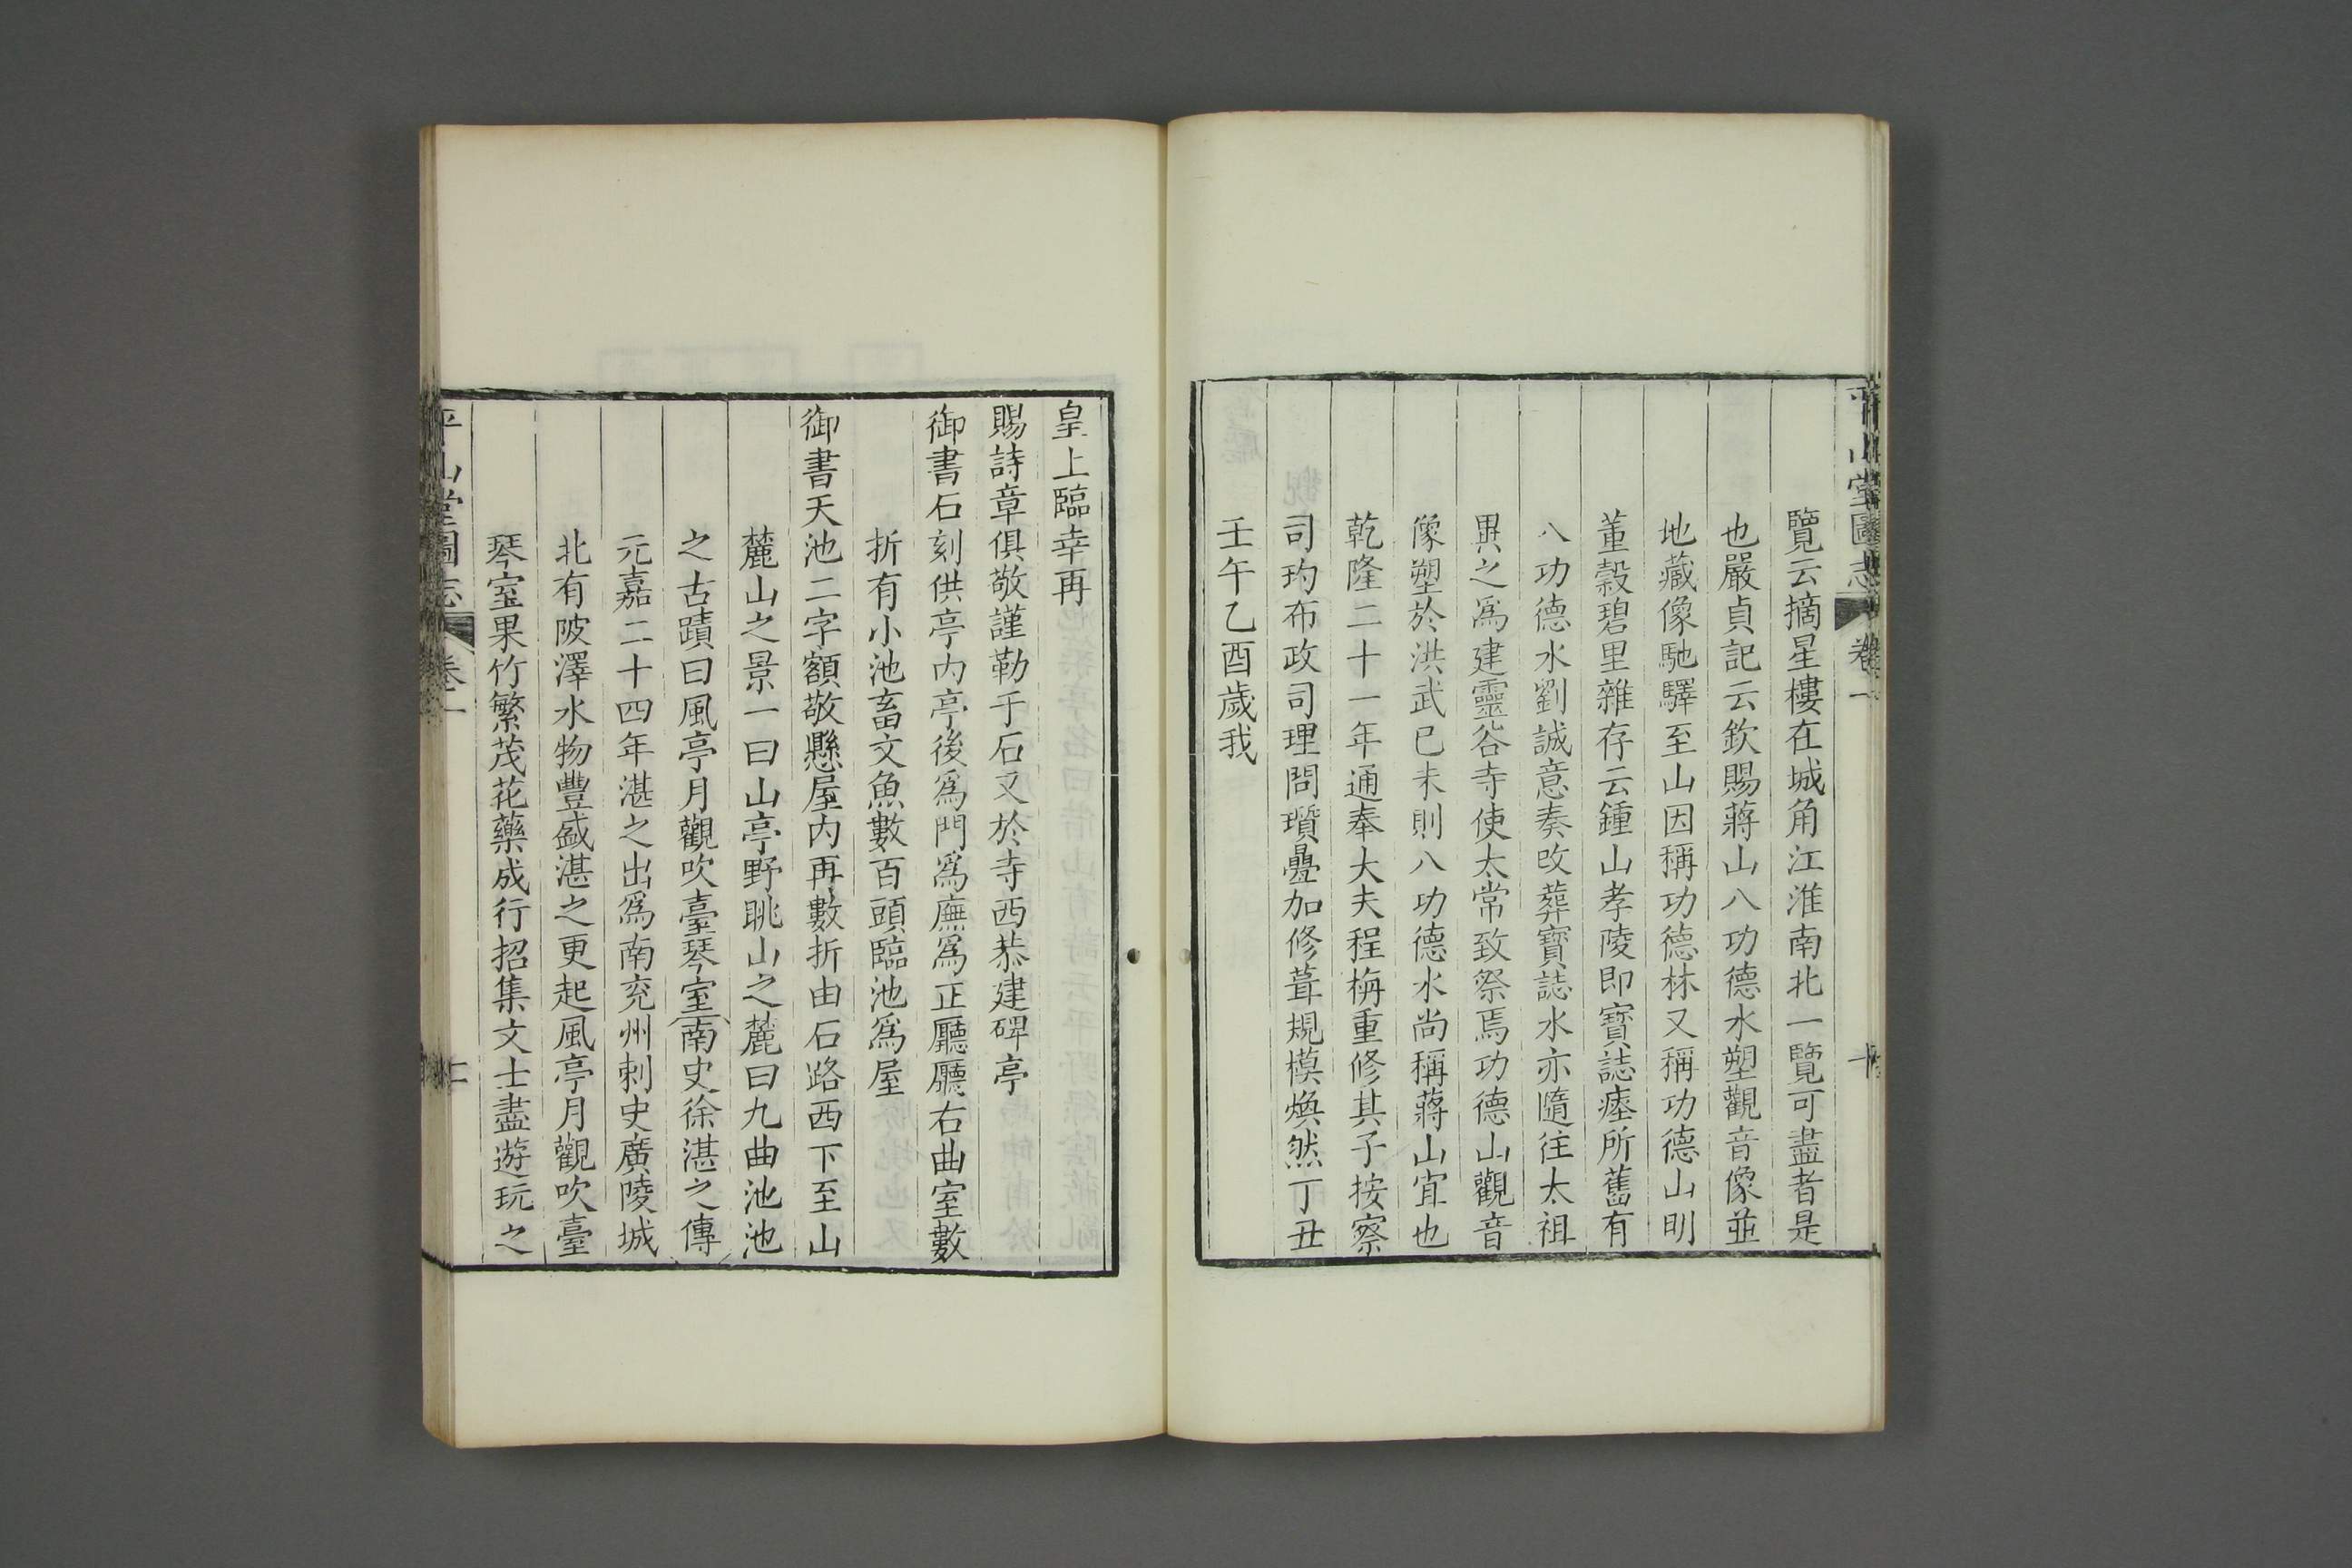 平山堂圖志 卷一 十
覽云摘星樓在城角江淮南北一覽可盡者是
也嚴貞記云欽賜蔣山八功德水塑觀音像並
地藏像馳驛至山因稱功德林又稱功德山明
董穀碧里雜存云鍾山孝陵即寶誌瘞所舊有
八功德水劉誠意奏改葬寶誌水亦隨往太祖
異之爲建靈谷寺使太常致祭焉功德山觀音
像塑於洪武已未則八功德水尚稱蔣山宜也
乾隆二十一年通奉大夫程栴重修其子按察
司玓布政司理問瓚疊加修葺規模煥然丁丑
壬午乙酉歲我
皇上臨幸再
賜詩章俱敬謹勒于石又於寺西恭建碑亭
御書石刻供亭内亭後爲門爲廡爲正廳廳右曲室數
折有小池畜文魚數百頭臨池爲屋
御書天池二字額敬懸屋内再數折由石路西下至山
麓山之景一曰山亭野眺山之麓曰九曲池池
之古蹟曰風亭月觀吹臺琴室南史徐湛之傳
元嘉二十四年湛之出爲南兖州刺史廣陵城
北有陂澤水物豐盛湛之更起風亭月觀吹臺
琴室果竹繁茂花藥成行招集文士盡遊玩之
平山堂圖志 卷一